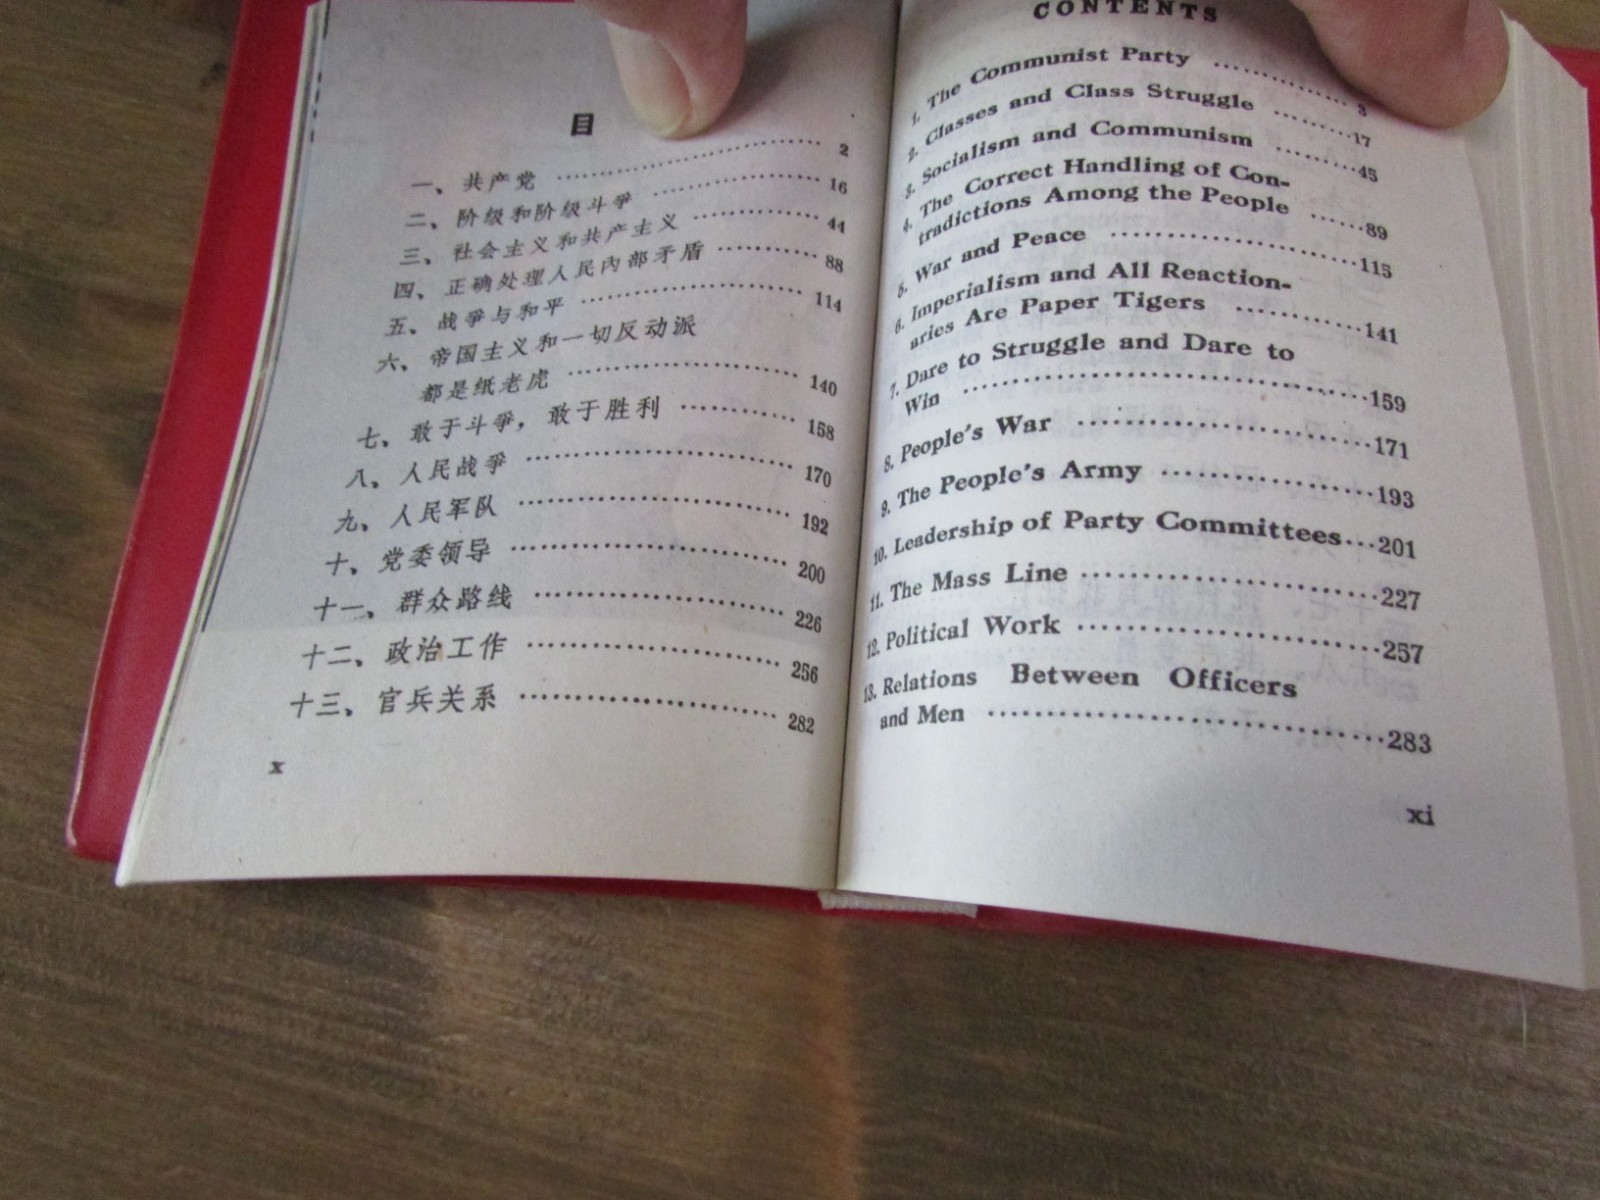 目
一、共产党 ………… 2
二、阶级和阶级斗爭 ………… 16
三、社会主义和共产主义 ………… 44
四、正确处理人民內部矛盾 ………… 88
五、战爭与和平 ………… 114
六、帝国主义和一切反动派
都是纸老虎 ………… 140
七、敢于斗爭，敢于胜利 ………… 158
八、人民战爭 ………… 170
九、人民军队 ………… 192
十、党委领导 ………… 200
十一、群众路线 ………… 226
十二、政治工作 ………… 256
十三、官兵关系 ………… 282
x
CONTENTS
1. The Communist Party ………… 3
2. Classes and Class Struggle ………… 17
3. Socialism and Communism ………… 45
4. The Correct Handling of Con-
tradictions Among the People ………… 89
5. War and Peace ………… 115
6. Imperialism and All Reaction-
aries Are Paper Tigers ………… 141
7. Dare to Struggle and Dare to
Win ………… 159
8. People's War ………… 171
9. The People's Army ………… 193
10. Leadership of Party Committees...201
11. The Mass Line ………… 227
12. Political Work ………… 257
13. Relations Between Officers
and Men ………… 283
xi